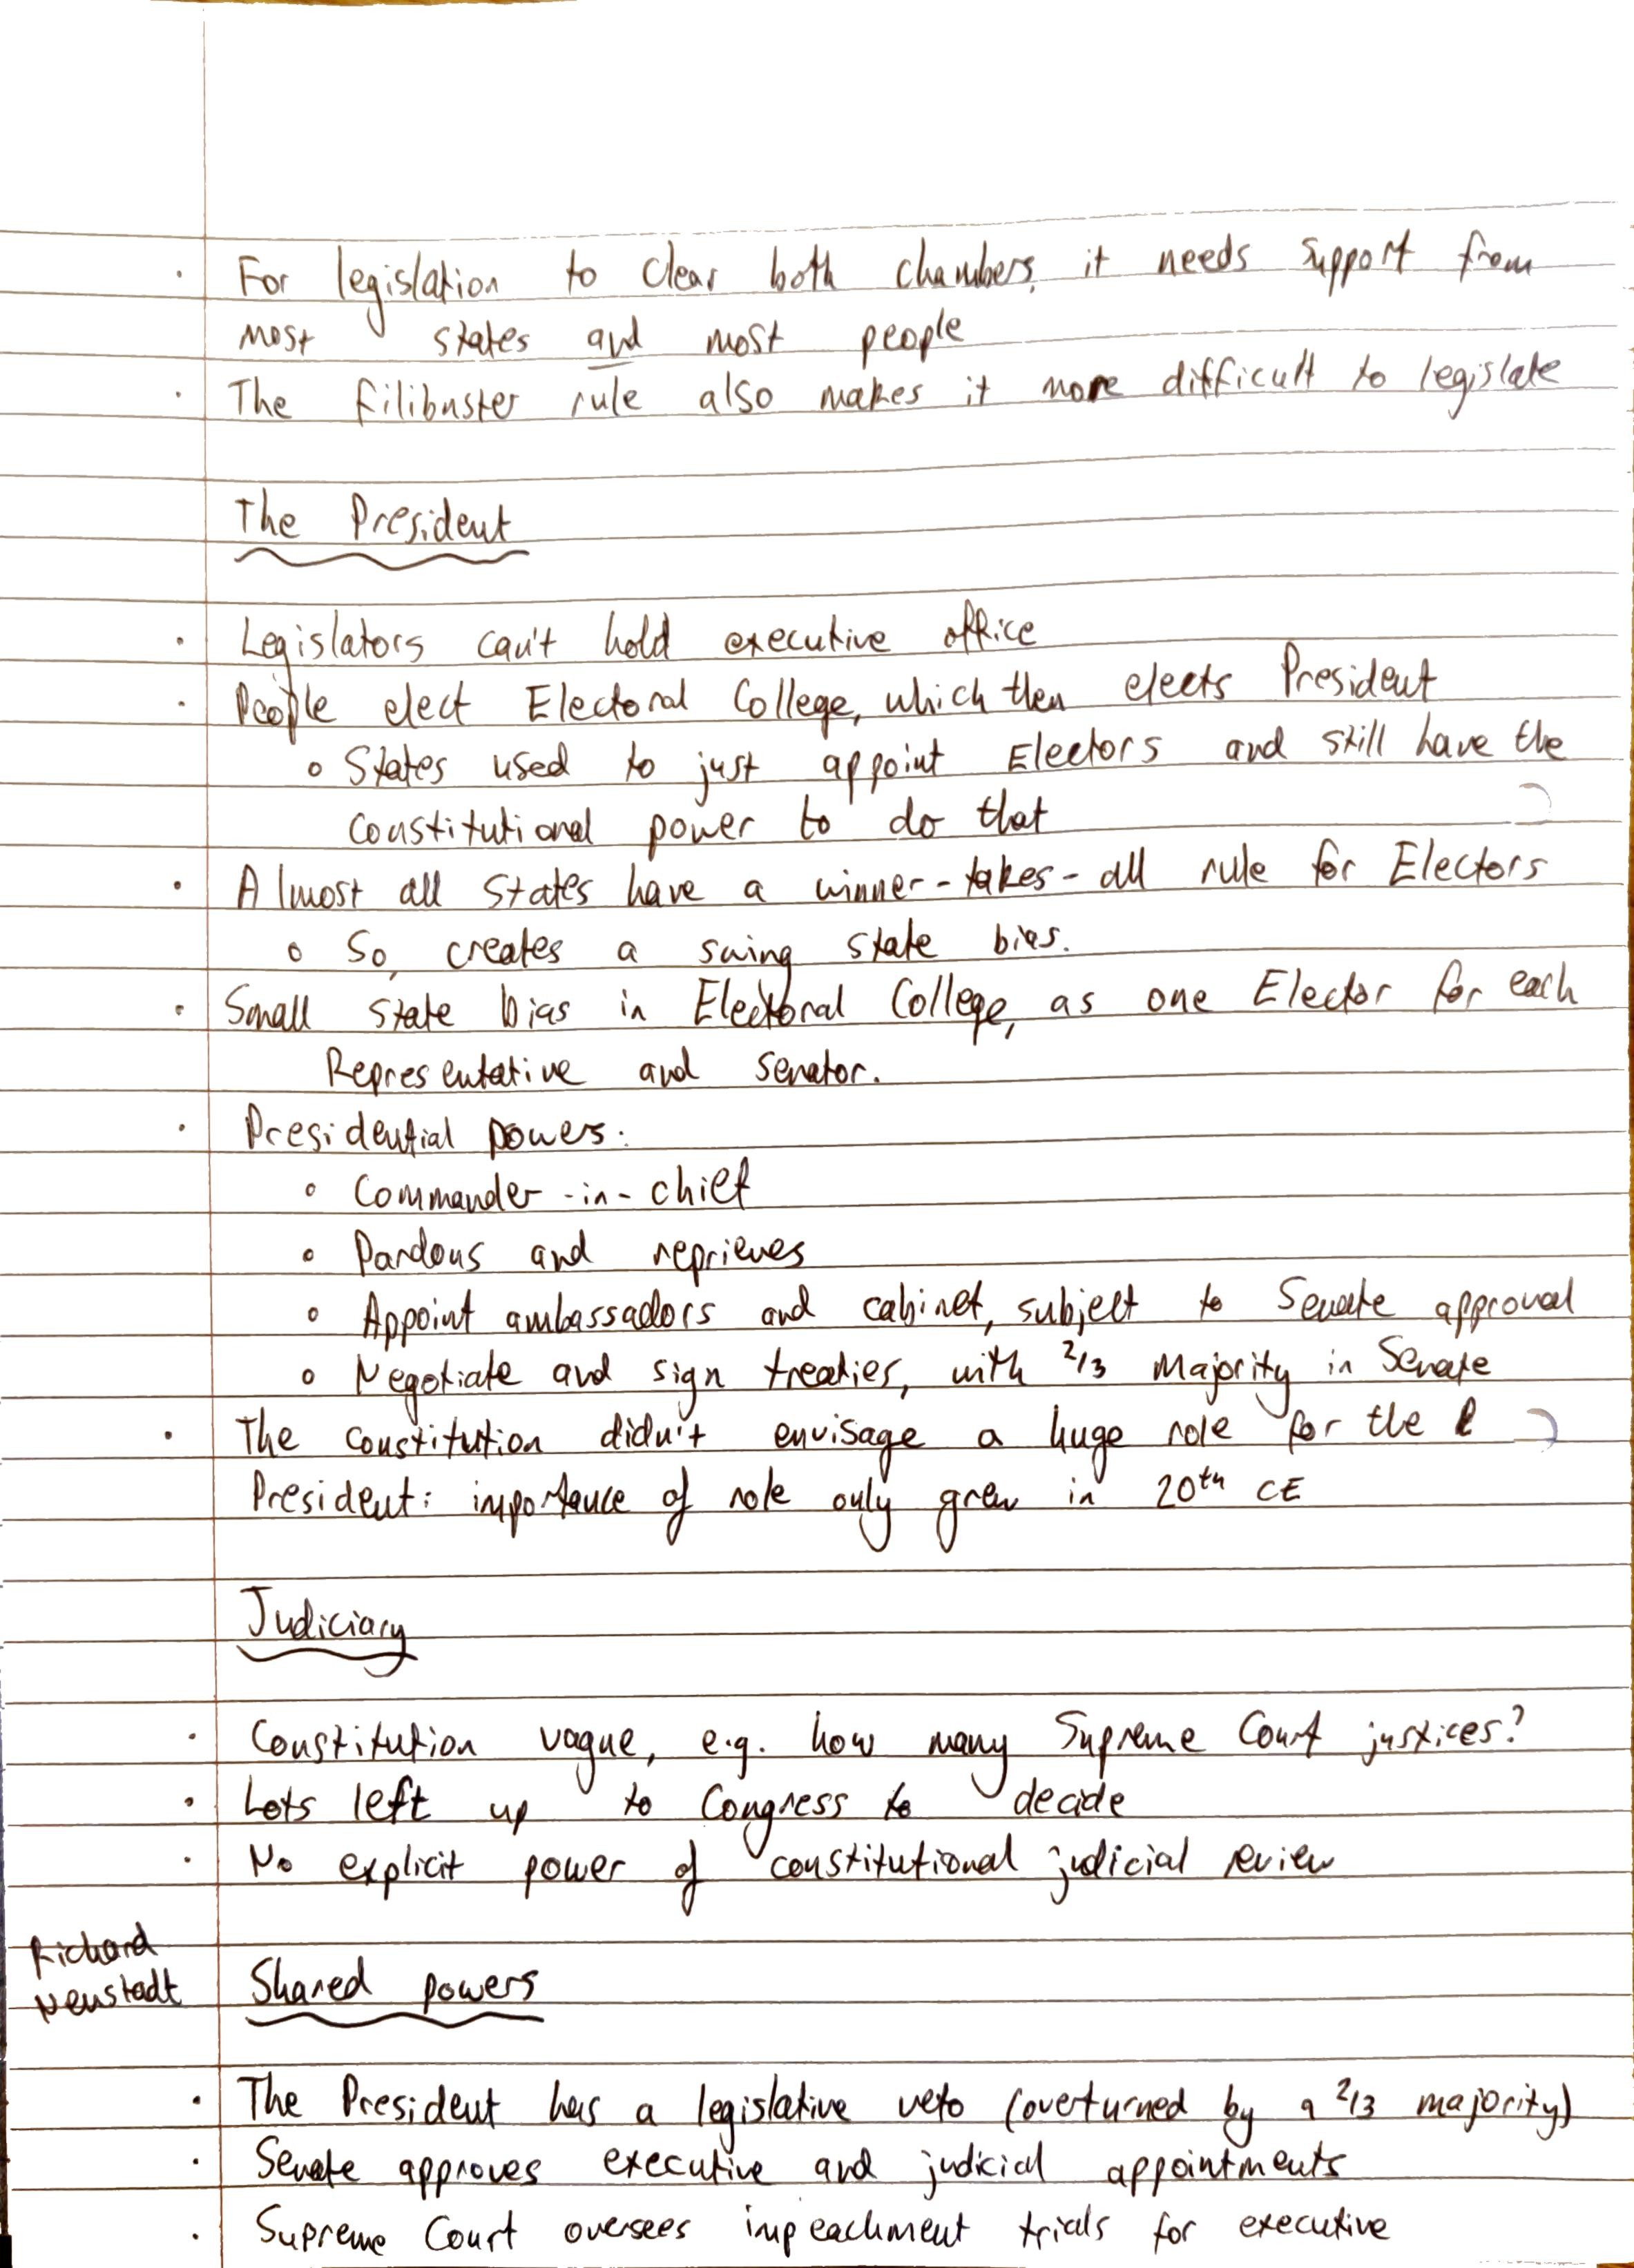 · For legislation to clear both chambers, it needs support from
most states and most people
· The filibuster rule also makes it more difficult to legislate
The President
· Legislators can't hold executive office
· People elect Electoral College, which then elects President
o States used to just appoint Electors and still have the
constitutional power to do that
· Almost all states have a winner-takes-all rule for Electors
o So, creates a swing state bias.
· Small state bias in Electoral College, as one Elector for each
Representative and senator.
· Presidential powers:
o Commander-in-chief
o Pardons and reprieves
o Appoint ambassadors and cabinet, subject to Senate approval
o Negotiate and sign treaties, with 2/3 majority in Senate
· The constitution didn't envisage a huge role for the
President: importance of role only grew in 20th CE
Judiciary
· Constitution vague, e.g. how many Supreme Court justices?
· Lots left up to Congress to decide
· No explicit power of constitutional judicial review
Richard
Neustadt
Shared powers
· The President has a legislative veto (overturned by a 2/3 majority)
· Senate approves executive and judicial appointments
· Supreme Court oversees impeachment trials for executive